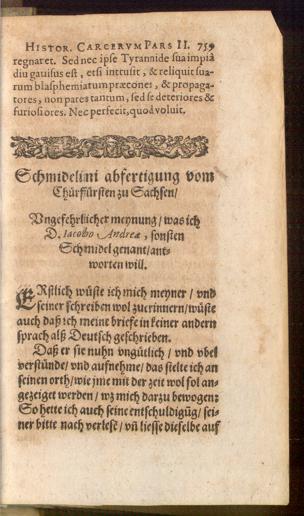 HISTOR. CARCERVM PARS II. 759
regnaret. Sed nec ipse Tyrannide sua impia
diu gauisus est, etsi inttusit, & reliquit sua-
rum blasphemiatum præcones, & propaga-
tores, non pares tantum, sed se deteriores &
furiosiores. Nec perfecit, quod voluit.
Schmidelini abfertigung vom
Chürfürsten zu Sachsen/
Vngefehrlicher meynung / was ich
D. Iacobo Andreæ, sonsten
Schmidel genant/ ant-
worten will.
ERstlich wüste ich mich meyner / vnd
seiner schreiben wol zuerinnern/wüste
auch daß ich meine briefe in keiner andern
sprach alß Deutsch geschrieben.
Daß er sie nuhn vngütlich / vnd vbel
verstünde/ vnd auffnehme/ das stelte ich an
seinen orth/wie jme mit der zeit wol sol an-
gezeiget werden / wz mich darzu bewogen:
So hette ich auch seine entschuldigüg/ sei-
ner bitte nach verlesē/ vn̄ liesse dieselbe auf